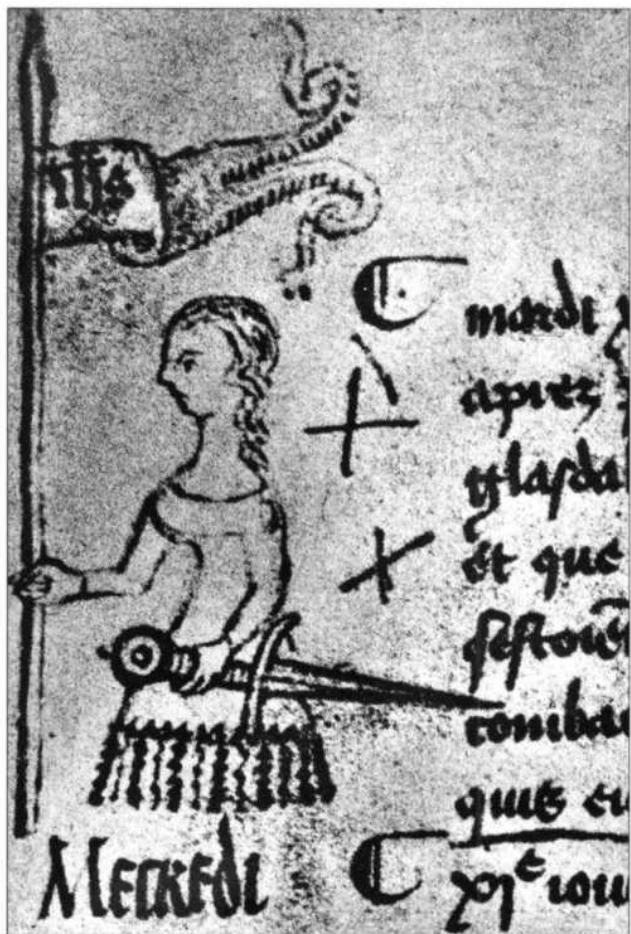 ihs
mardi
apres
glasda
et que
sestoie
comba
quis en
Mercredi
xje iou